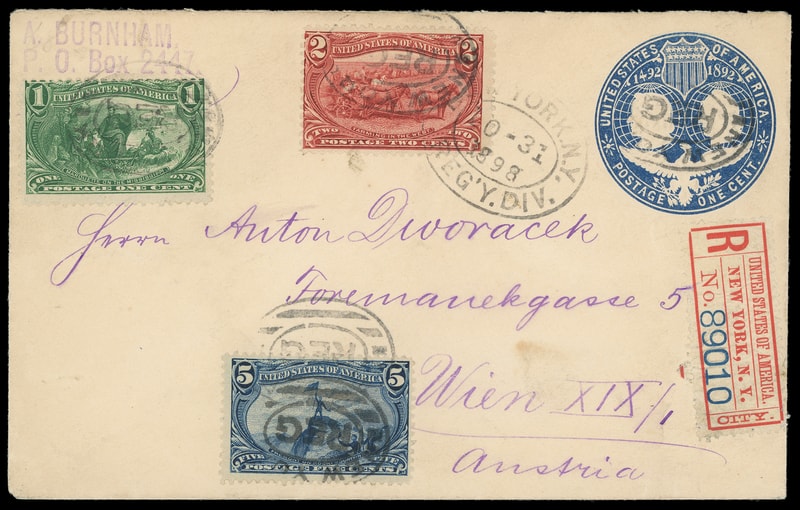 A. BURNHAM
P. O. Box 2447
1 1
UNITED STATES OF AMERICA
MARQUETTE ON THE MISSISSIPPI
ONE ONE
POSTAGE ONE CENT
2 2
UNITED STATES OF AMERICA
FARMING IN THE WEST
TWO TWO
POSTAGE TWO CENTS
REG
YORK, N.Y.
10-31
1898
REG'Y. DIV.
UNITED STATES OF AMERICA
1492 1892
POSTAGE ONE CENT.
REG
Herrn Anton Dworacek
Foremanekgasse 5
Wien XIX/1
Austria
R
UNITED STATES OF AMERICA.
NEW YORK, N. Y.
No. 89010
CITY
REG
5 5
UNITED STATES OF AMERICA
FIVE
POSTAGE FIVE CENTS
REG